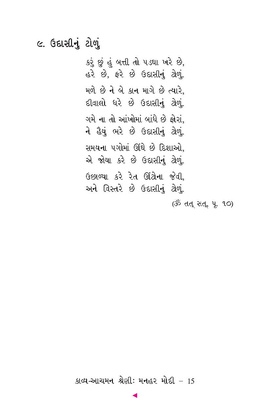 ૯. ઉદાસીનું ટોળું
કરું છું હું બત્તી તો પડઘા ખરે છે,
હરે છે, ફરે છે ઉદાસીનું ટોળું.
મળે છે ને બે કાન માગે છે ત્યારે,
દીવાલો ધરે છે ઉદાસીનું ટોળું.
ગમે ના તો આંખોમાં બાંધે છે ફોરાં,
ને હૈયું ભરે છે ઉદાસીનું ટોળું.
સમયના પગોમાં ઊંઘે છે દિશાઓ,
એ જોયા કરે છે ઉદાસીનું ટોળું.
ઉછાળ્યા કરે રેત ઊંટોના જેવી,
અને વિસ્તરે છે ઉદાસીનું ટોળું.
(ૐ તત્ સત્, પૃ. ૧૦)
કાવ્ય-આચમન શ્રેણીઃ મનહર મોદી – 15